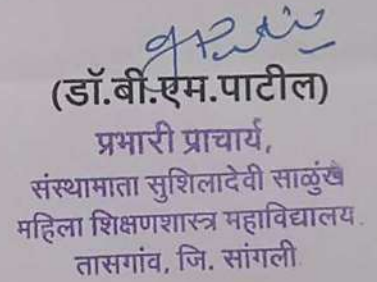 (डॉ.बी.एम.पाटील)
प्रभारी प्राचार्य,
संस्थामाता सुशिलादेवी साळुंखे
महिला शिक्षणशास्त्र महाविद्यालय.
तासगांव, जि. सांगली